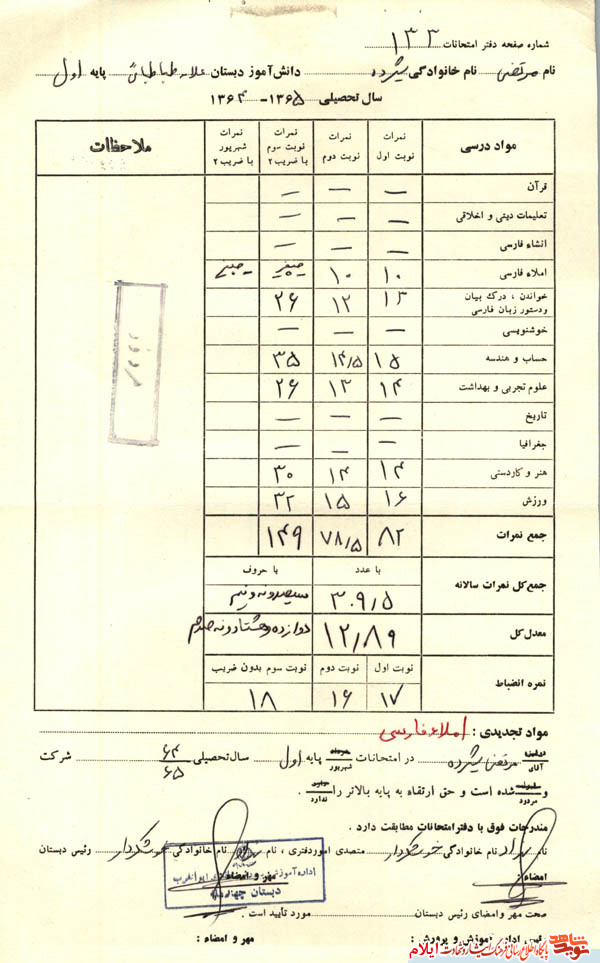 شماره صفحه دفتر امتحانات ۱۳۳
نام مرتضی نام خانوادگی دانش آموز دبستان علامه طباطبائی پایه اول
سال تحصیلی ۱۳۶۵-۱۳۶۴
مواد درسی نمرات نوبت اول نمرات نوبت دوم نمرات نوبت سوم با ضریب ۲ نمرات شهریور با ضریب ۲ ملاحظات
قرآن — — —
تعلیمات دینی و اخلاقی — — —
انشاء فارسی — — —
املاء فارسی ۱۰ ۱۰
خواندن ، درک بیان ودستور زبان فارسی ۱۳ ۱۲ ۲۶
خوشنویسی — — —
حساب و هندسه ۱۵ ۱۴/۵ ۳۵
علوم تجربی و بهداشت ۱۴ ۱۳ ۲۶
تاریخ — — —
جغرافیا — — —
هنر و کاردستی ۱۴ ۱۴ ۳۰
ورزش ۱۶ ۱۵ ۳۲
جمع نمرات ۸۲ ۷۸/۵ ۱۴۹
جمع کل نمرات سالانه با عدد ۳۰۹/۵ با حروف سیصدونه ونیم
معدل کل ۱۲/۸۹ دوازده وهشتادونه صدم
نمره انضباط نوبت اول ۱۷ نوبت دوم ۱۶ نوبت سوم بدون ضریب ۱۸
مردود
مواد تجدیدی : املاء فارسی
آقای مرتضی در امتحانات خرداد شهریور پایه اول سال تحصیلی ۶۴ ۶۵ شرکت
و قبول مردود شده است و حق ارتقاء به پایه بالاتر را دارد ندارد .
مندرجات فوق با دفتر امتحانات مطابقت دارد .
نام نام خانوادگی متصدی اموردفتری ، نام نام خانوادگی رئیس دبستان
امضاء : مهر و امضاء :
اداره آموزش
دبستان
صحت مهر و امضای رئیس دبستان مورد تأیید است .
رئیس اداره آموزش و پرورش : مهر و امضاء :
شاهد نوید
پایگاه اطلاع رسانی فرهنگ ایثار و شهادت ایلام